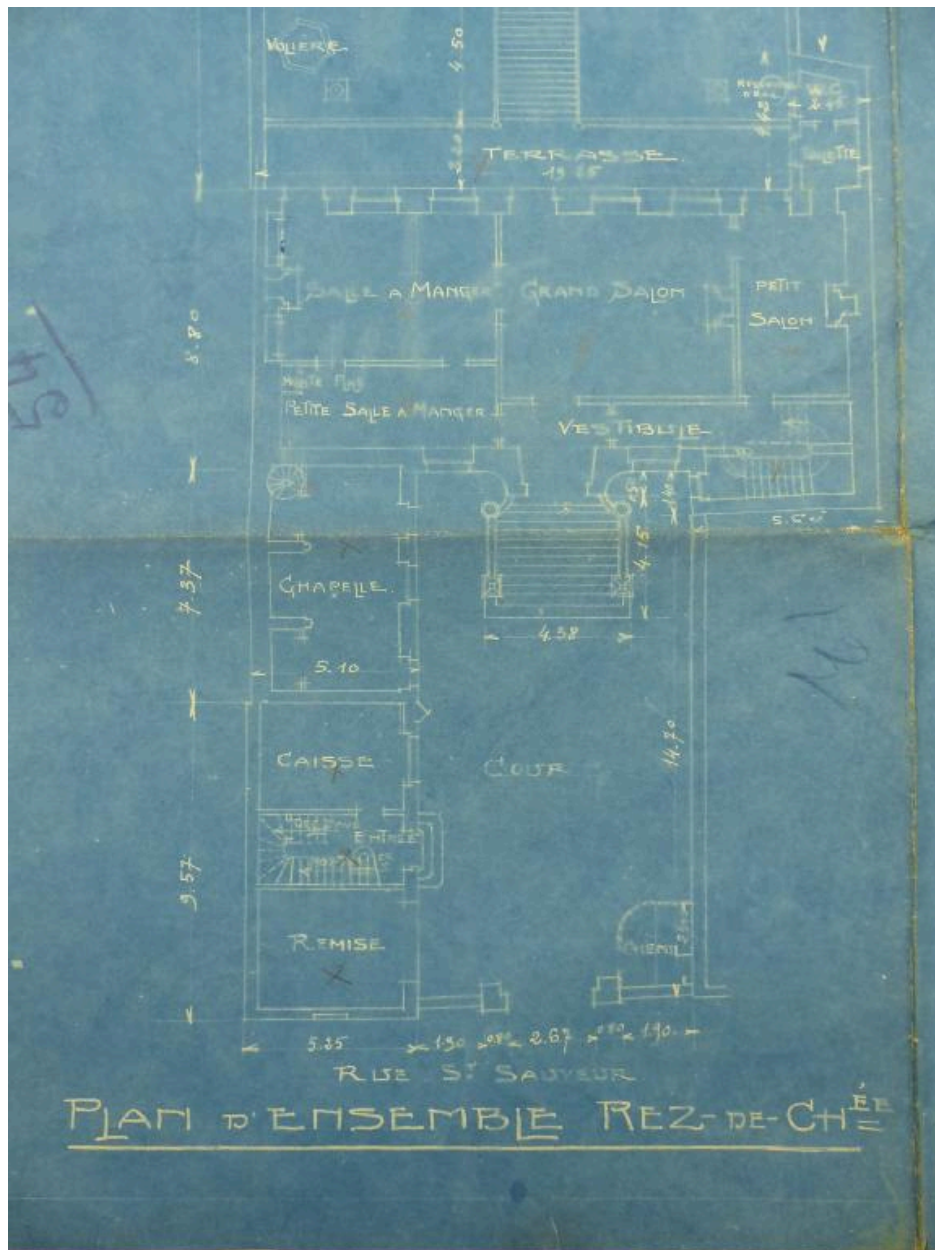 VOLIERE
4.50
W.C
TERRASSE
19.65
SALLE A MANGER
GRAND SALON
PETIT
SALON
8.80
PETITE SALLE A MANGER
VESTIBULE
5.60
4.15
4.38
CHAPELLE
7.37
5.10
CAISSE
COUR
14.70
ENTRÉE
9.57
REMISE
CHENIL
5.25
1.90
0.80
2.67
0.80
1.90
RUE ST SAUVEUR
PLAN D'ENSEMBLE REZ-DE-CHÉE